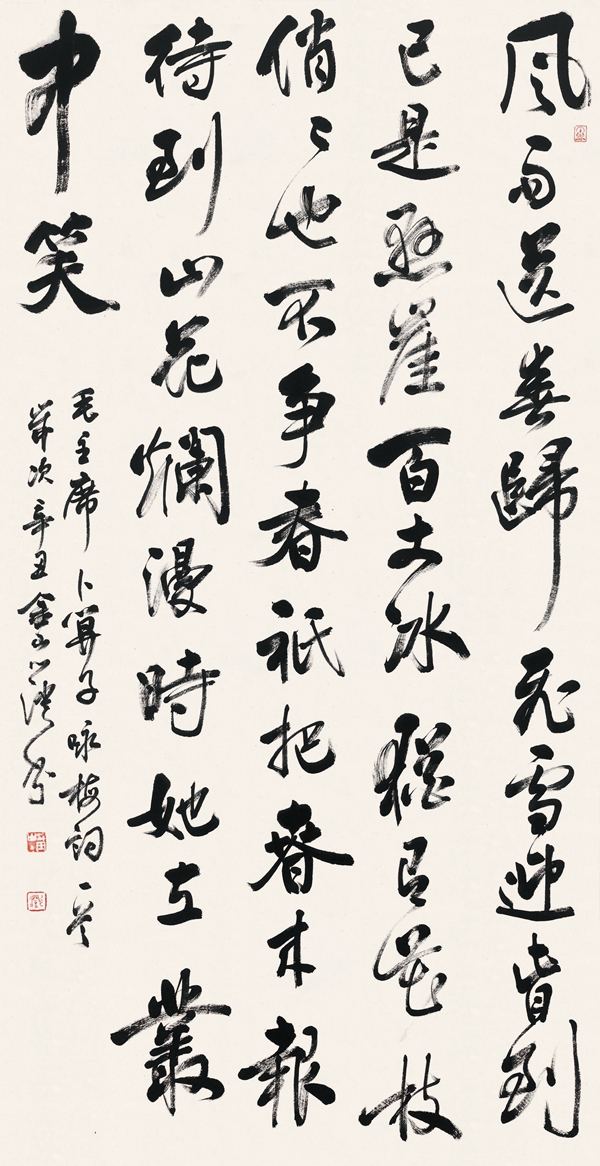 风雨送春歸飛雪迎春到
已是懸崖百丈冰猶有花枝
俏〻也不争春祇把春来報
待到山花爛漫時她在叢
中笑
毛主席卜算子咏梅詞一首
歲次辛丑金山